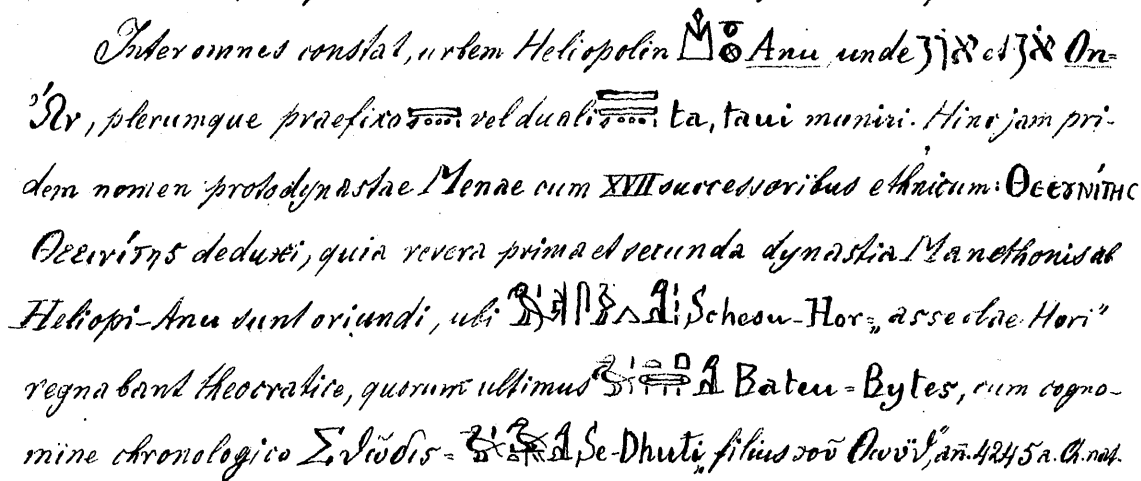 Inter omnes constat, urbem Heliopolin Anu unde און et אן On=
Ὢν, plerumque praefixo vel duali ta, taui muniri. Hinc jam pri-
dem nomen protodynastae Menae cum XVII successoribus ethnicum: ΘΕΕΥΝΊΤΗC
Θεεινίτης deduxi, quia revera prima et secunda dynastia Manethonis ab
Heliopi-Anu sunt oriundi, ubi Schesu-Hor= „asseclae Hori"
regnabant theocratice, quorum ultimus Bateu=Bytes, cum cogno-
mine chronologico = Se-Dhuti „filius τοῦ an. 4245 a. Ch. nat.